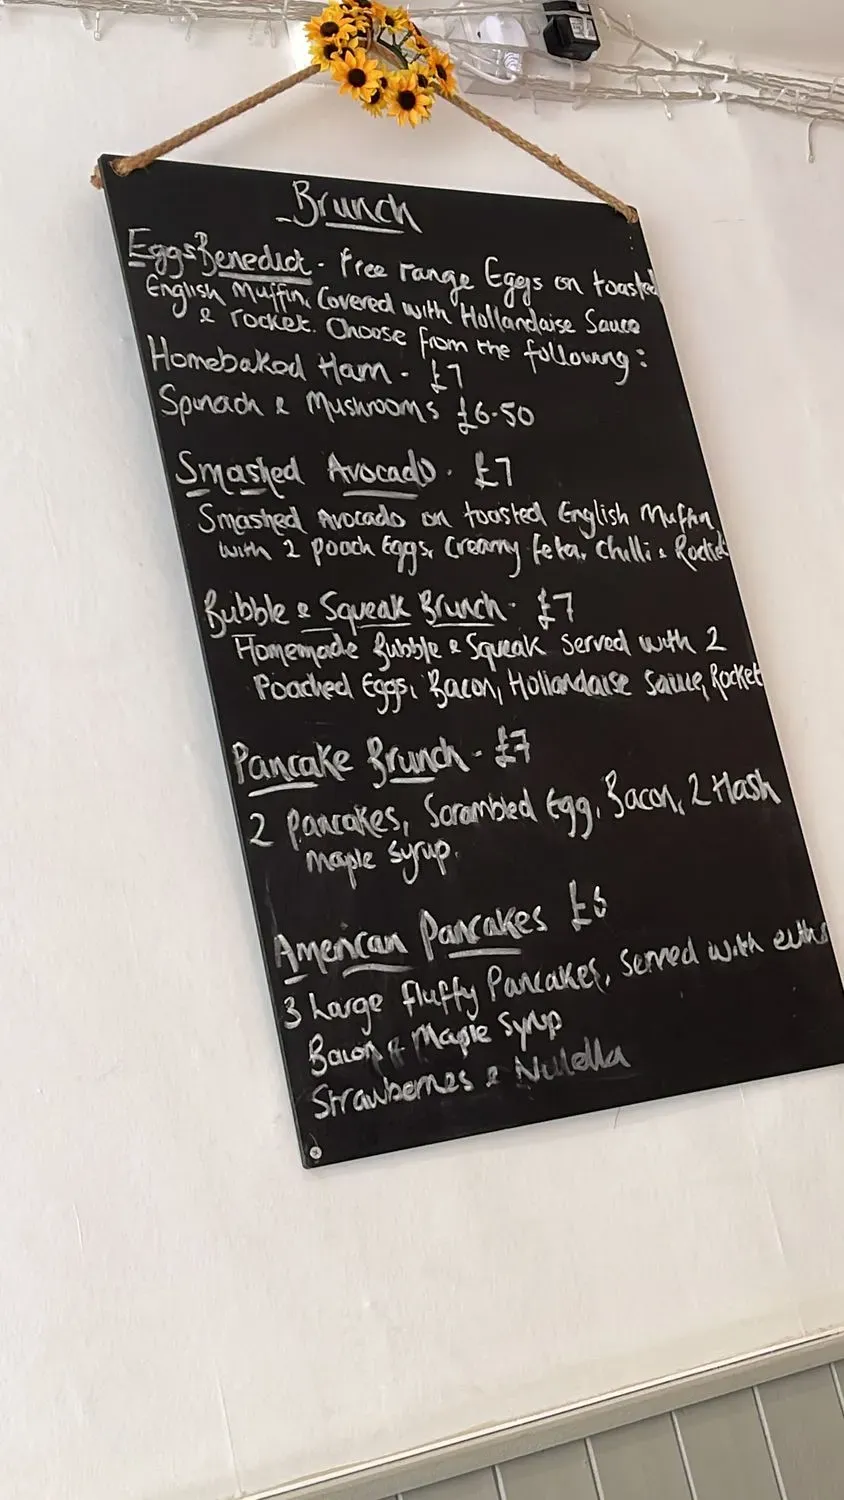 Brunch
Eggs Benedict - Free range Eggs on toasted
English Muffin, Covered with Hollandaise Sauce
& rocket. Choose from the following:
Homebaked Ham - £7
Spinach & Mushrooms £6-50
Smashed Avocado - £7
Smashed Avocado on toasted English Muffin
with 2 poach Eggs, Creamy feta, Chilli & Rocket
Bubble & Squeak Brunch - £7
Homemade Bubble & Squeak Served with 2
Poached Eggs, Bacon, Hollandaise Sauce, Rocket
Pancake Brunch - £7
2 Pancakes, Scrambled Egg, Bacon, 2 Hash
Maple Syrup.
American Pancakes
3 Large Fluffy Pancakes, Served with either
Bacon & Maple Syrup
Strawberries & Nutella